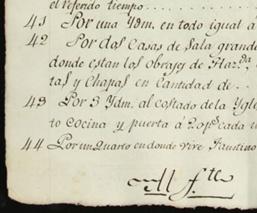 el referido tiempo
41 Por una Ydm. en todo igual á
42 Por dos Casas de Sala grand
donde estan los Obrajes de Haz.da
tas y Chapas en Cantidad de
43 Por 3 Ydm. al costado de la Ygle
to cocina y puerta á 2 op.s cada u
44 Por un Quarto en donde vive Faustino